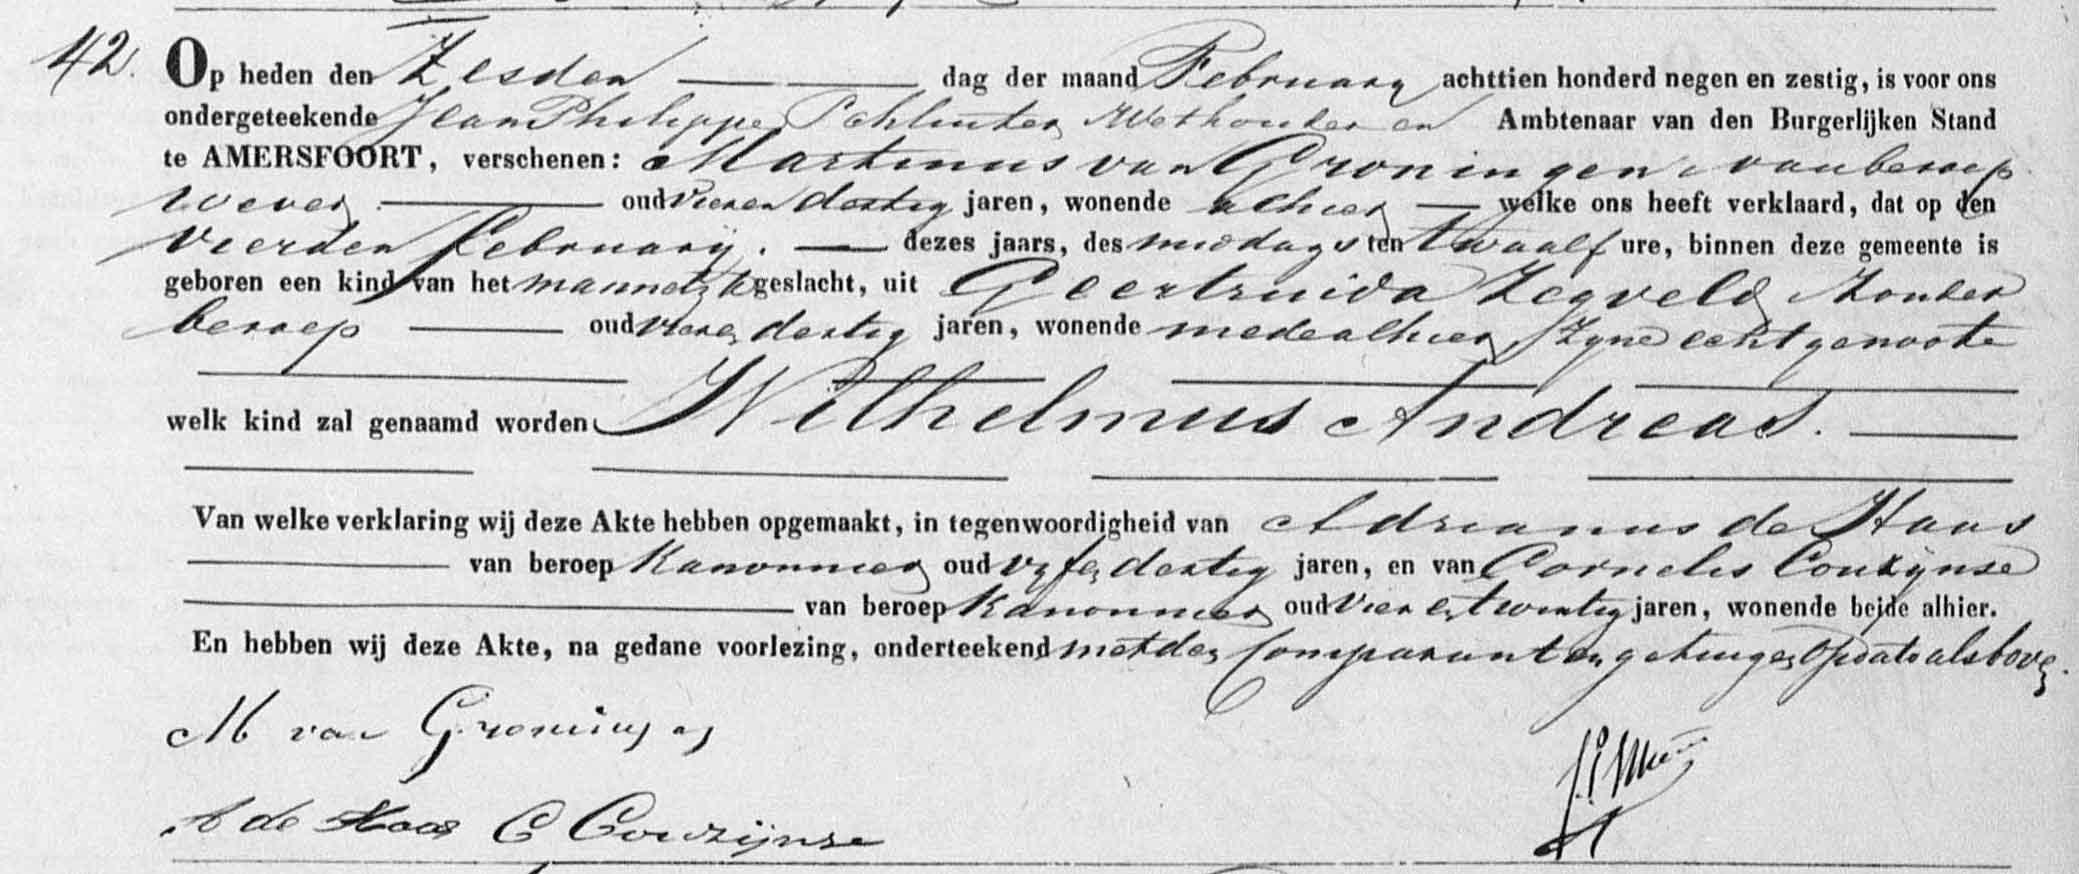 42. Op heden den Zesden dag der maand February achttien honderd negen en zestig, is voor ons
ondergeteekende Jean Philippe Schluiter Wethouder en Ambtenaar van den Burgerlijken Stand
te AMERSFOORT, verschenen: Martinus van Groningen van beroep
wever oud vier en dertig jaren, wonende alhier welke ons heeft verklaard, dat op den
vierden February. dezes jaars, des middags ten twaalf ure, binnen deze gemeente is
geboren een kind van het mannelijk geslacht, uit Geertruida Zegveld Zonder
beroep oud vier en dertig jaren, wonende mede alhier, zyne echtgenoote
welk kind zal genaamd worden Wilhelmus Andreas.
Van welke verklaring wij deze Akte hebben opgemaakt, in tegenwoordigheid van Adrianus de Haas
van beroep Kanonnier oud vyf en dertig jaren, en van Cornelis Couzijnse
van beroep Kanonnier oud vier en twintig jaren, wonende beide alhier.
En hebben wij deze Akte, na gedane voorlezing, onderteekend met den Comparant en getuigen op dato als boven.
M van Groningen
A de Haas C Couzijnse